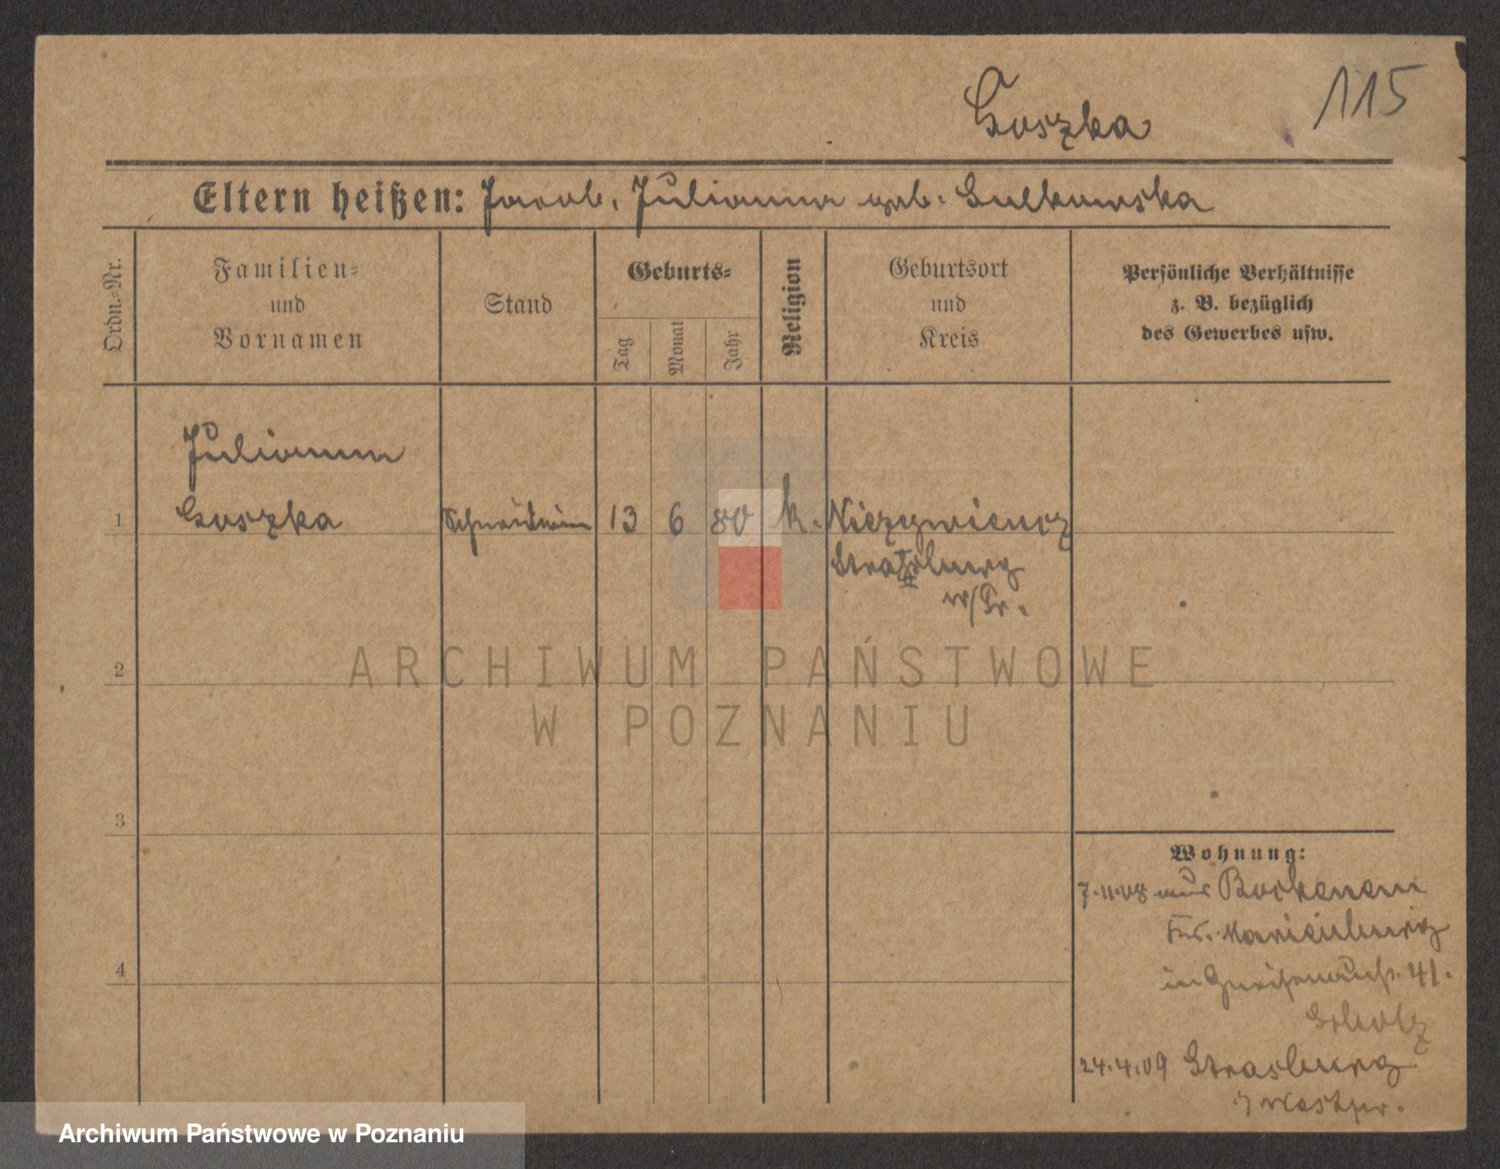 Goszka
115
Eltern heißen: Jacob, Julianna geb. Gulkowska
Ordn.-Nr.
Familien-
und
Vornamen
Stand
Geburts-
Tag
Monat
Jahr
Religion
Geburtsort
und
Kreis
Persönliche Verhältnisse
z. B. bezüglich
des Gewerbes usw.
Julianna
1 Goszka Schneiderin 13 6 80 k. Niezywiencz
Strasburg
w/Pr.
2
ARCHIWUM PAŃSTWOWE
W POZNANIU
3
Wohnung:
7.11.08 aus Bockenem
Krs. Marienburg
4
in Gneisenaustr. 41.
Scholz
24.4.09 Strasburg
Westpr.
Archiwum Państwowe w Poznaniu